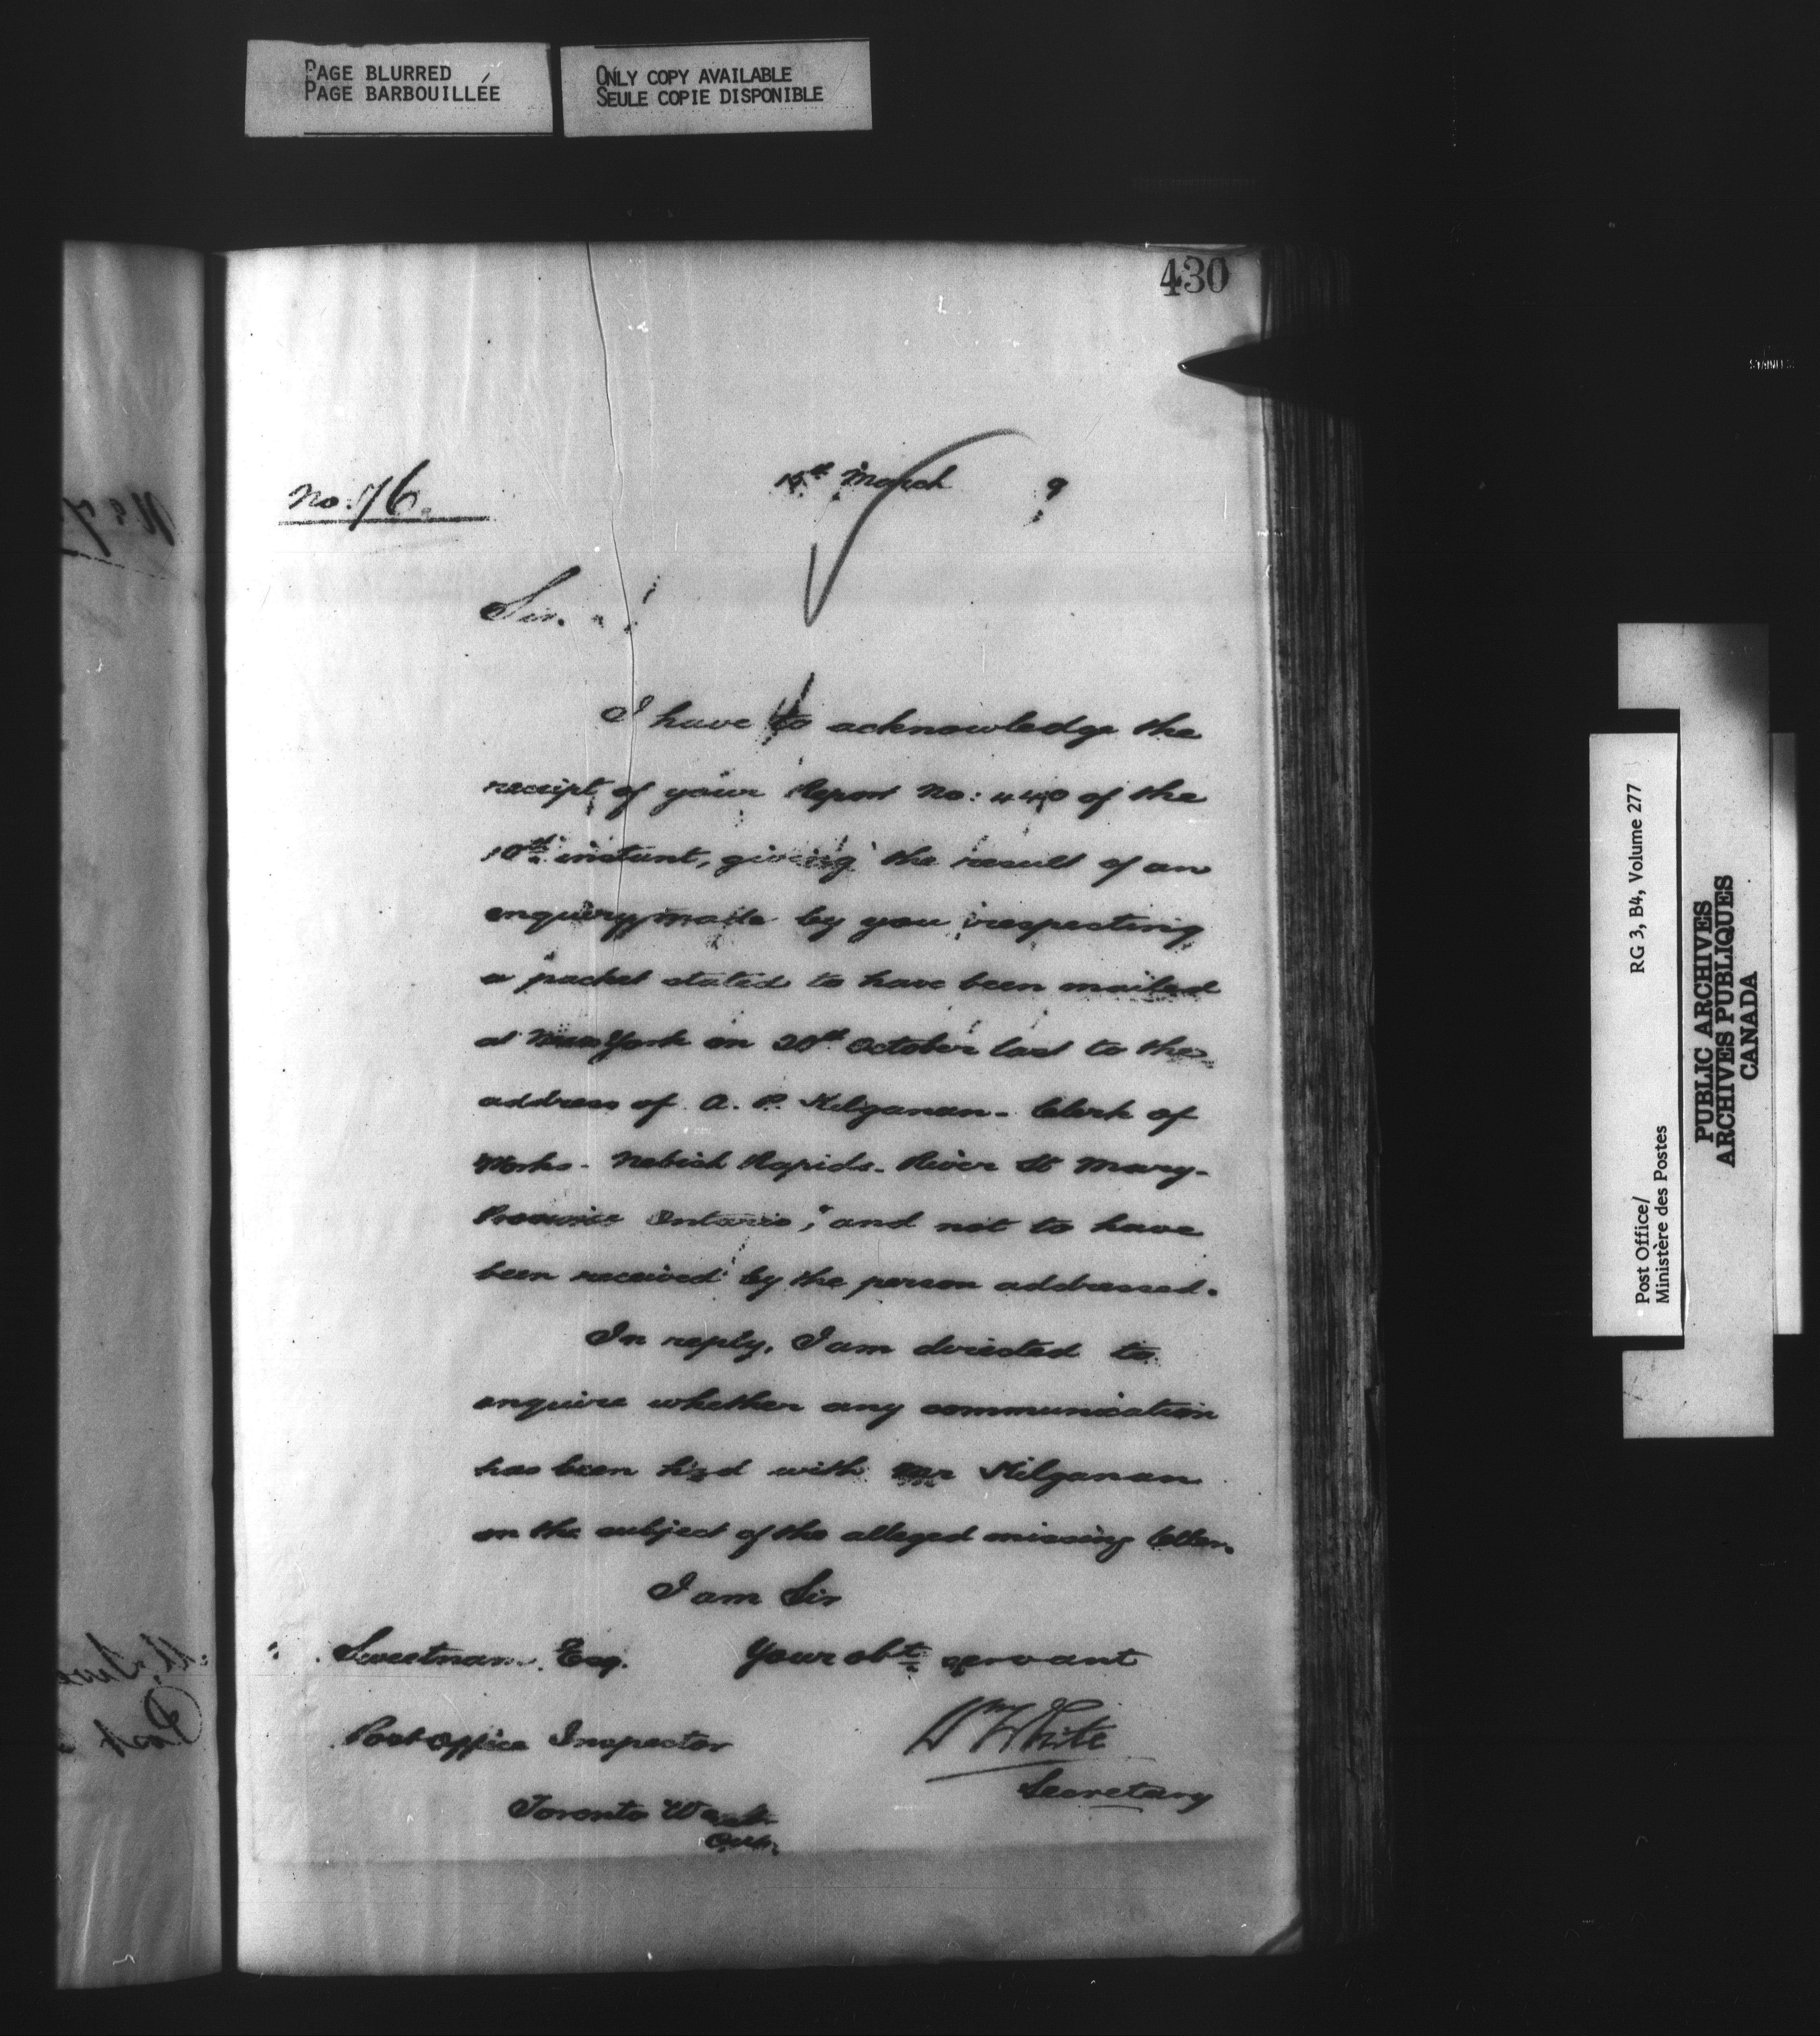 PAGE BLURRED
PAGE BARBOUILLÉE
ONLY COPY AVAILABLE
SEULE COPIE DISPONIBLE
430
No: 76.
15th March 9
Sir.
I have to acknowledge the
receipt of your Report No: 440 of the
10th instant, giving the result of an
enquiry made by you respecting
a packet stated to have been mailed
at New York on 28th October last to the
address of A. P. Kilganan. Clerk of
Works. Nebish Rapids. River St Mary.
Province Ontario," and not to have
been received by the person addressed.
In reply, I am directed to
enquire whether any communication
has been had with Mr Kilganan
on the subject of the alleged missing letter.
I am Sir
Sweetnam Esq. Your obt servant
Post Office Inspector
Wm White
Secretary
Toronto West
Ont.
Post Office/
Ministère des Postes
RG 3, B4, Volume 277
PUBLIC ARCHIVES
ARCHIVES PUBLIQUES
CANADA